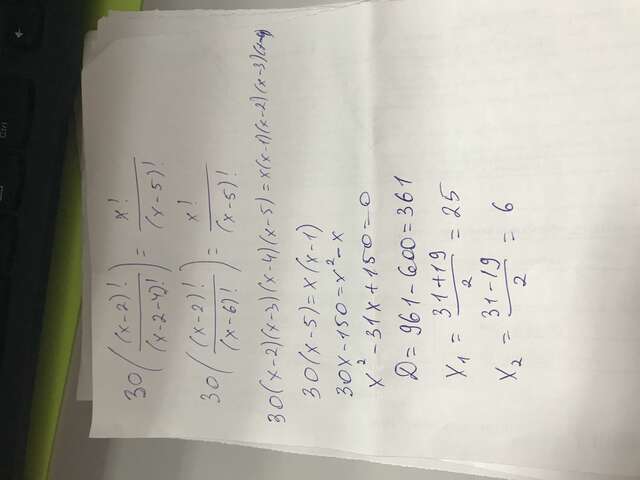 30((x-2)!/(x-2-4)!) = x!/(x-5)!
30((x-2)!/(x-6)!) = x!/(x-5)!
30(x-2)(x-3)(x-4)(x-5)=x(x-1)(x-2)(x-3)(x-4)
30(x-5)=x(x-1)
30x-150=x²-x
x²-31x+150=0
D=961-600=361
x₁ = 31+19/2 = 25
x₂ = 31-19/2 = 6